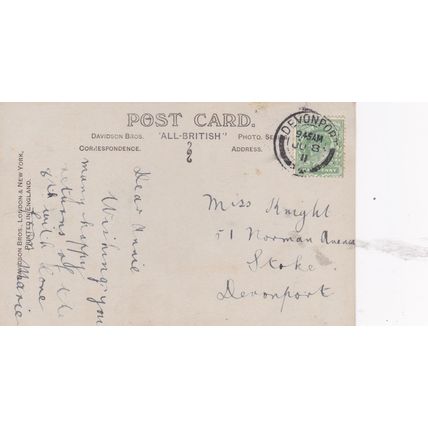 POST CARD.
DAVIDSON BROS. "ALL-BRITISH" PHOTO. SE
CORRESPONDENCE.
ADDRESS.
DEVONPORT
9.45AM
JU 8
11
PENNY
DAVIDSON BROS., LONDON & NEW YORK,
PRINTED IN ENGLAND.
Dear Annie
Wishing you
many happy
returns of the
8th with love
from Marie
Miss Knight
51 Norman Avenue
Stoke
Devonport